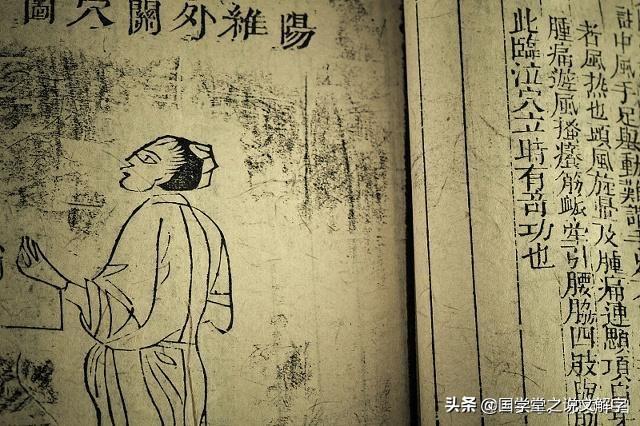 陽維外關穴圖
中風手足舉動難
風热也頭風旋暈及腫痛連顋項
腫痛遊風搔癢筋脈牽引腰脇四肢
此臨泣穴立時有奇功也
头条 @国学堂之说文解字